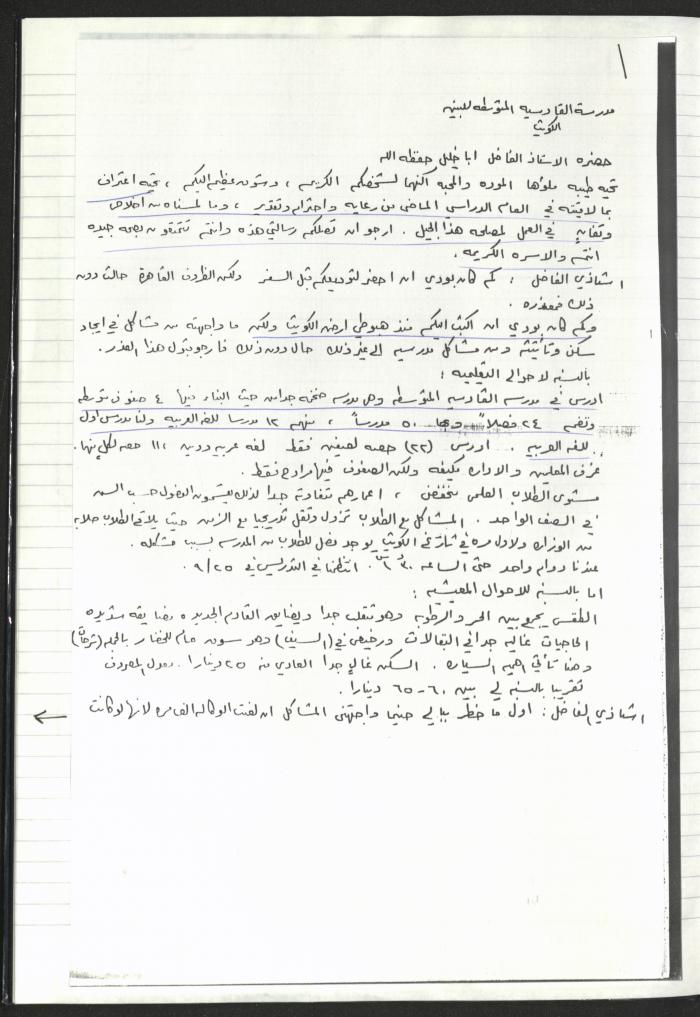 ١
مدرسة القادسيه المتوسطه للبنين
الكويت
حضره الاستاذ الفاضل ابا خليل حفظه الله
تحيه طيبه ملؤها الموده والمحبه اكنهما لشخصكم الكريم ، وشوق عظيم اليكم ، تحيه اعتراف
بما لاقيته في العام الدراسي الماضي من رعايه واحترام وتقدير ، وما لمسناه من اخلاص
وتفانٍ في العمل لمصلحه هذا الجيل . ارجو ان تصلكم رسالتي هذه وانتم تتمتعون بصحه جيده
انتم والاسره الكريمه .
استاذي الفاضل : كم كان بودي ان احضر لتوديعكم قبل السفر ولكن الظروف القاهرة حالت دون
ذلك فمعذره .
وكم كان بودي ان اكتب اليكم منذ هبوطي ارض الكويت ولكن ما واجهته من مشاكل في ايجاد
سكن وتأثيثه ومن مشاكل مدرسيه الى غير ذلك حال دون ذلك فارجو قبول هذا العذر .
بالنسبه لاحوالي التعليميه :
ادرس في مدرسه القادسيه المتوسطه وهي مدرسه ضخمه جدا من حيث البناء فيها ٤ صفوف متوسطه
وتضم ٢٤ فصلاً وبها ٥٠ مدرساً ، منهم ١٢ مدرسا للغه العربيه ولنا مدرس اول
للغه العربيه . ادرس (٢٢) حصه لصفين فقط لغه عربيه ودين ، ١١ حصه لكل منها .
غرف المعلمين والاداره مكيفه ولكن الصفوف فيها مراوح فقط .
مستوى الطلاب العلمي منخفض ، اعمارهم متفاوتة جدا لذلك يقسمون الفصول حسب السن
في الصف الواحد . المشاكل مع الطلاب تزول وتقل تدريجيا مع الزمن حيث يلاقي الطلاب صلابه
من الوزاره ولاول مره في تاريخ الكويت يوجد فصل للطلاب من المدرسه بسبب مشكله .
عندنا دوام واحد حتى الساعه . انتظمنا في التدريس في ٩/٢٥ .
اما بالنسبه للاحوال المعيشيه :
الطقس يجمع بين الحر والرطوبه وهو متقلب جدا ويضايق القادم الجديد مضايقه شديده
الحاجيات غاليه جدا في البقالات ورخيصه في (السيف) وهو سوق عام للخضار بالجمله
وهنا تأتي اهميه السياره . السكن غالٍ جدا العادي منه ٢٥ دينارا . ومعدل المصروف
تقريبا بالنسبه لي بين ٦٠-٦٥ دينارا .
استاذي الفاضل : اول ما خطر ببالي حينما واجهتني المشاكل ان لعنت الوكاله الغامره لانها لو كانت